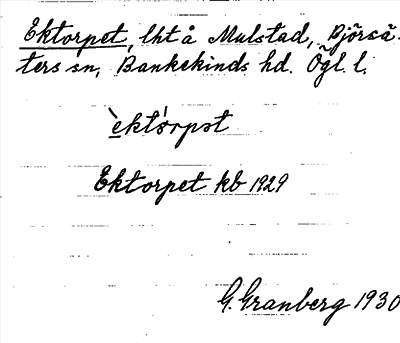 Ektorpet, lht å Mulstad, Björsä-
ters sn, Bankekinds hd. Ögl. l.
èktórpət
Ektorpet kb 1929
G. Granberg 1930